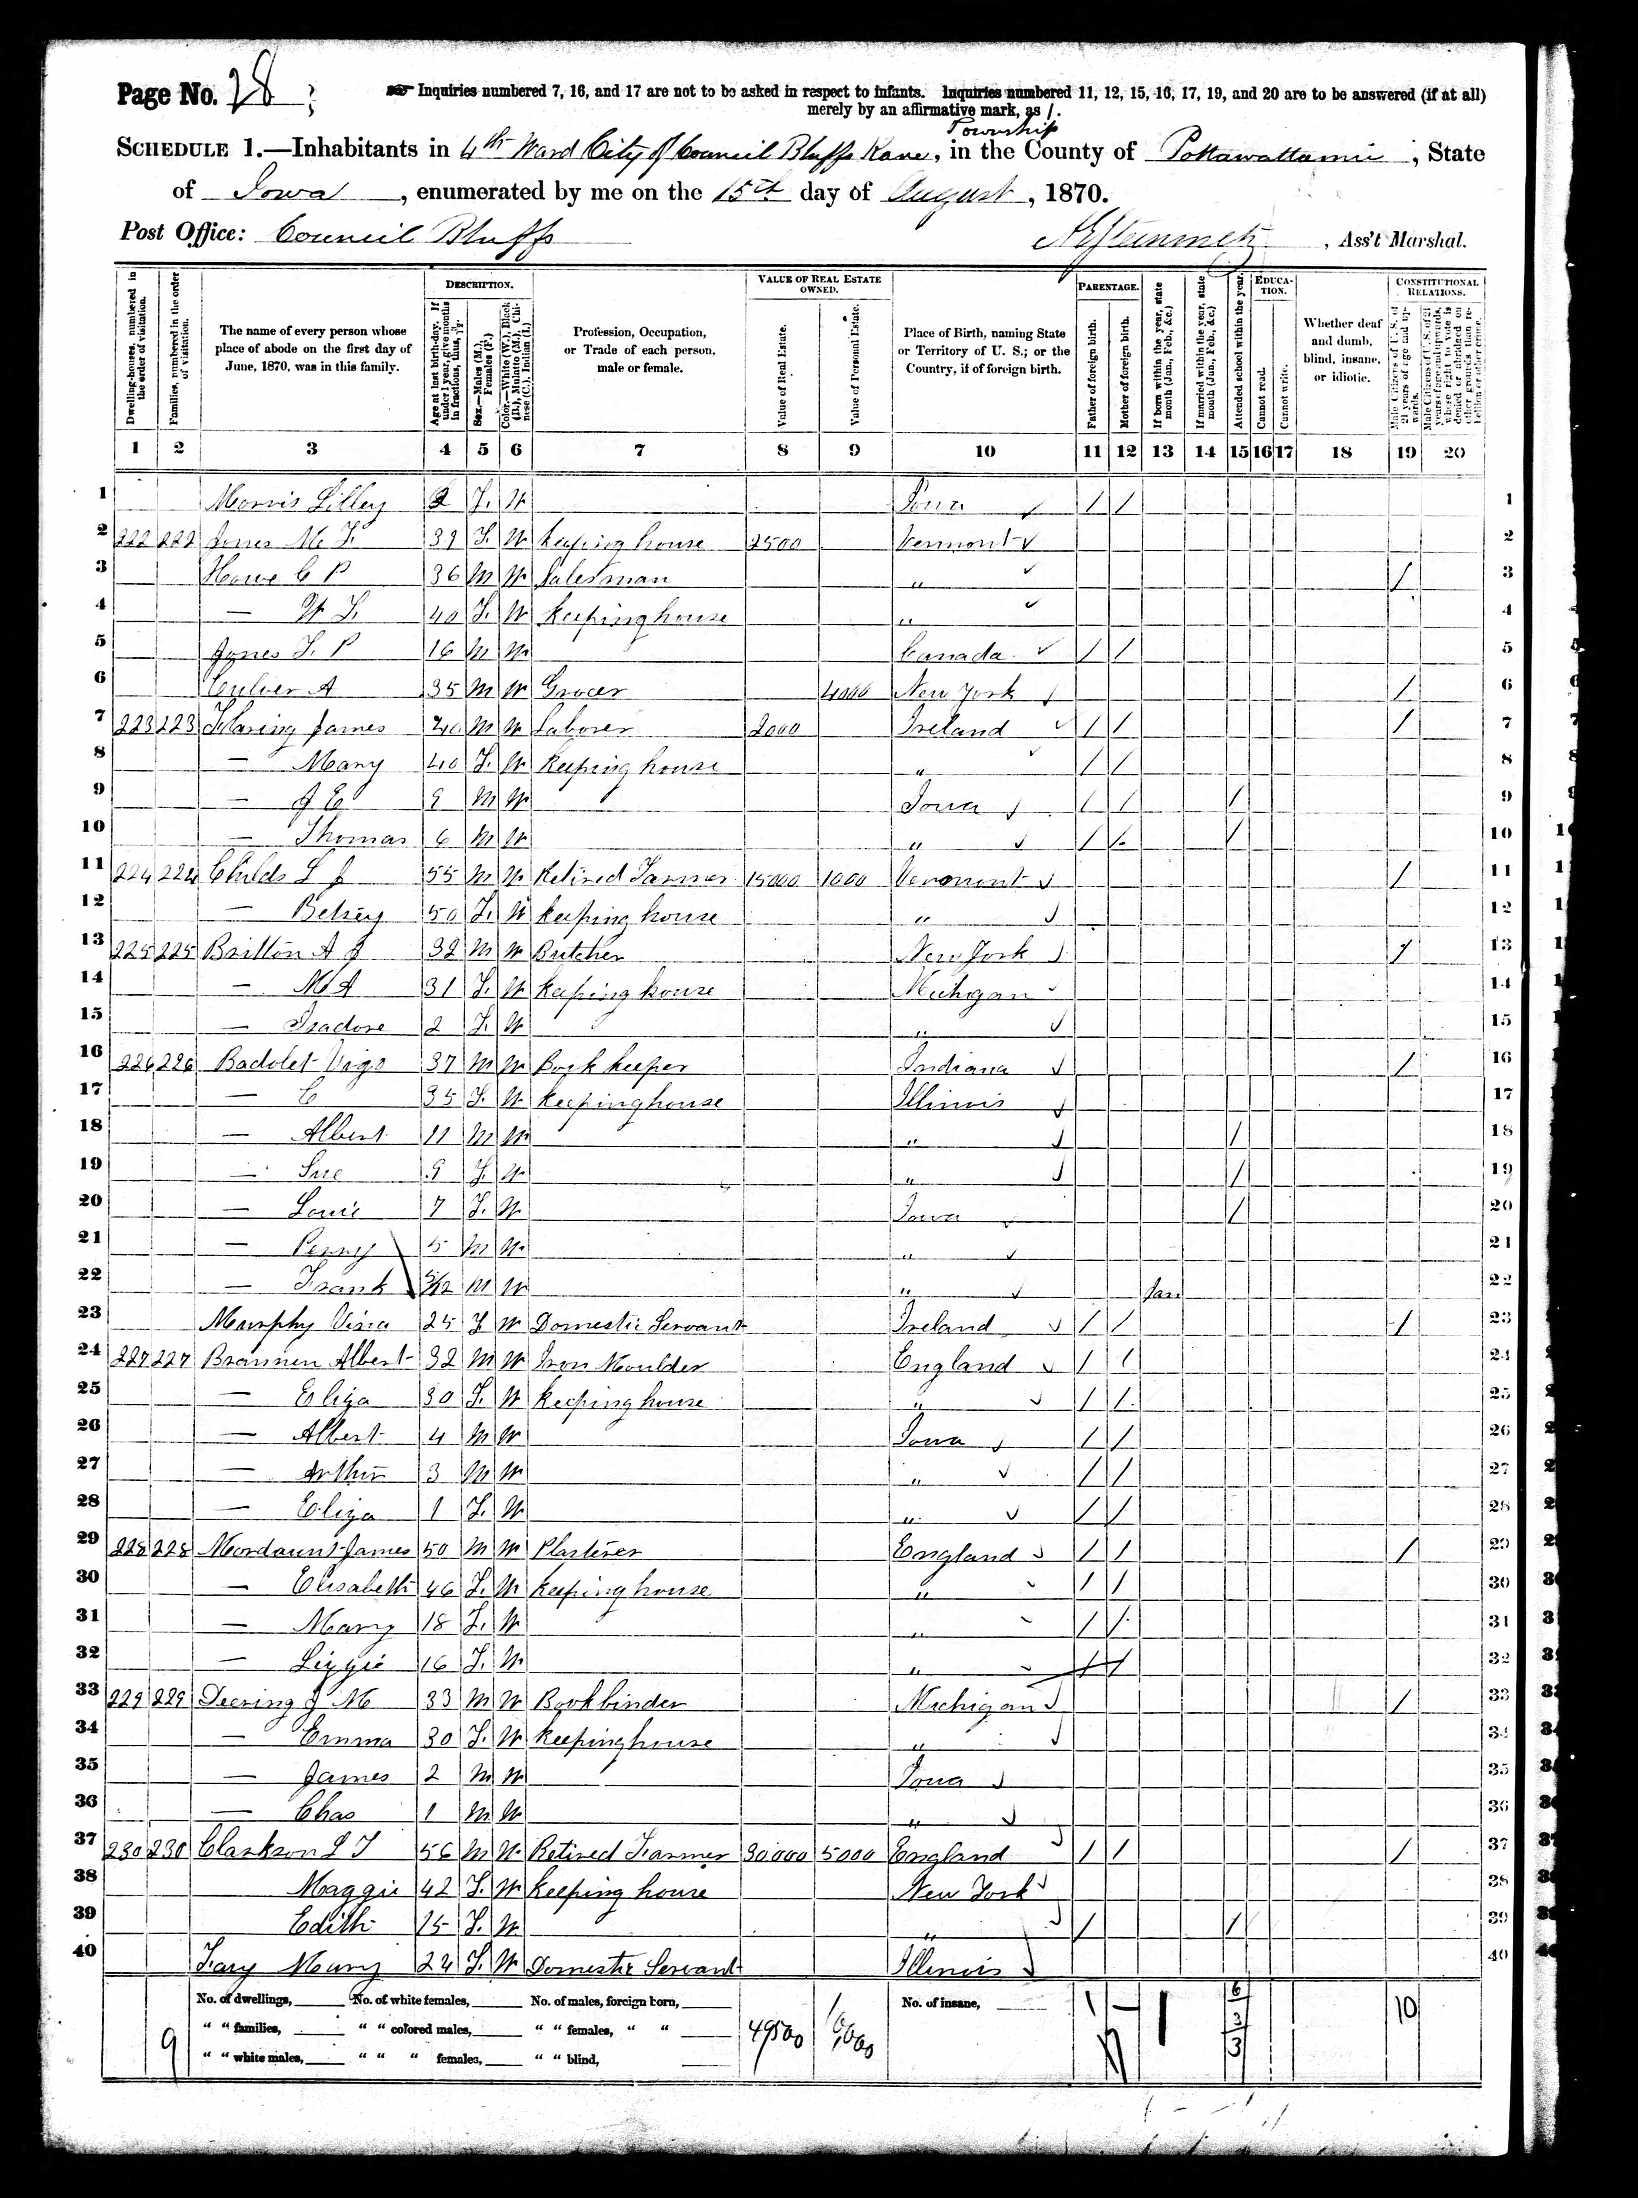 Page No. 28
Inquiries numbered 7, 16, and 17 are not to be asked in respect to infants. Inquiries numbered 11, 12, 15, 16, 17, 19, and 20 are to be answered (if at all)
merely by an affirmative mark, as /.
Township
SCHEDULE 1.—Inhabitants in 4th Ward City of Council Bluffs Kane, in the County of Pottawattamie, State
of Iowa, enumerated by me on the 15th day of August, 1870.
Post Office: Council Bluffs
, Ass't Marshal.
Dwelling-houses, numbered in the order of visitation.
Families, numbered in the order of visitation.
The name of every person whose place of abode on the first day of June, 1870, was in this family.
DESCRIPTION.
Age at last birth-day. If under 1 year, give months in fractions, thus, 3/12.
Sex.—Males (M.), Females (F.)
Color.—White (W.), Black (B.), Mulatto (M.), Chinese (C.), Indian (I.)
Profession, Occupation, or Trade of each person, male or female.
VALUE OF REAL ESTATE OWNED.
Value of Real Estate.
Value of Personal Estate.
Place of Birth, naming State or Territory of U. S.; or the Country, if of foreign birth.
PARENTAGE.
Father of foreign birth.
Mother of foreign birth.
If born within the year, state month (Jan., Feb., &c.)
If married within the year, state month (Jan., Feb., &c.)
Attended school within the year.
EDUCATION.
Cannot read.
Cannot write.
Whether deaf and dumb, blind, insane, or idiotic.
CONSTITUTIONAL RELATIONS.
Male Citizens of U. S. of 21 years of age and upwards.
1 2 3 4 5 6 7 8 9 10 11 12 13 14 15 16 17 18 19 20
1 Morris Lilley 2 F. W Iowa / / 1
2 222 222 Jones M F 39 F. W Keeping house 2500 Vermont 2
3 Howe C P 36 M W Salesman " / 3
4 — W F. 40 F. W Keeping house " 4
5 Jones F. P 16 M W Canada / / 5
6 Culver A 35 M W Grocer 4000 New York / 6
7 223 223 James 40 M W Laborer 2000 Ireland / / / 7
8 — Mary 40 F. W Keeping house " / / 8
9 — J E 9 M W Iowa / / / 9
10 — Thomas 6 M W " / / / 10
11 224 224 Childs L J 55 M W Retired Farmer 15000 1000 Vermont / 11
12 — Betsey 50 F. W Keeping house " 12
13 225 225 Britton A J 32 M W Butcher New York / 13
14 — M A 31 F. W Keeping house Michigan 14
15 — Isadore 2 F. W " 15
16 226 226 Badolet Vigo 37 M W Book keeper Indiana / 16
17 — C 35 F. W Keeping house Illinois 17
18 — Albert 11 M W " / 18
19 — Sue 9 F. W " / 19
20 — Louie 7 F. W Iowa / 20
21 — Perry 5 M W " 21
22 — Frank 5/12 M W " Jan 22
23 Murphy 25 F W Domestic Servant Ireland / / / 23
24 227 227 Brannen Albert 32 M W Iron Moulder England / / 24
25 — Eliza 30 F. W Keeping house " / / 25
26 — Albert 4 M W Iowa / / 26
27 — Arthur 3 M W " / / 27
28 — Eliza 1 F. W " / / 28
29 228 228 Mordaunt James 50 M W Plasterer England / / / 29
30 — Elisabeth 46 F. W Keeping house " / / 30
31 — Mary 18 F. W " / / 31
32 — Lizzie 16 F. W " / / 32
33 229 229 Deering J M 33 M W Bookbinder Michigan / 33
34 — Emma 30 F. W Keeping house " 34
35 — James 2 M W Iowa 35
36 — Chas 1 M W " 36
37 230 230 Clarkson L T 56 M W Retired Farmer 30000 5000 England / / / 37
38 Maggie 42 F. W Keeping house New York 38
39 Edith 15 F. W " / / 39
40 Fary Mary 24 F. W Domestic Servant Illinois 40
No. of dwellings, No. of white females, No. of males, foreign born, No. of insane,
" " families, " " colored males, " " females, " "
" " white males, " " " females, " " blind,
9 49500 10,000 17 1 6 3 3 10